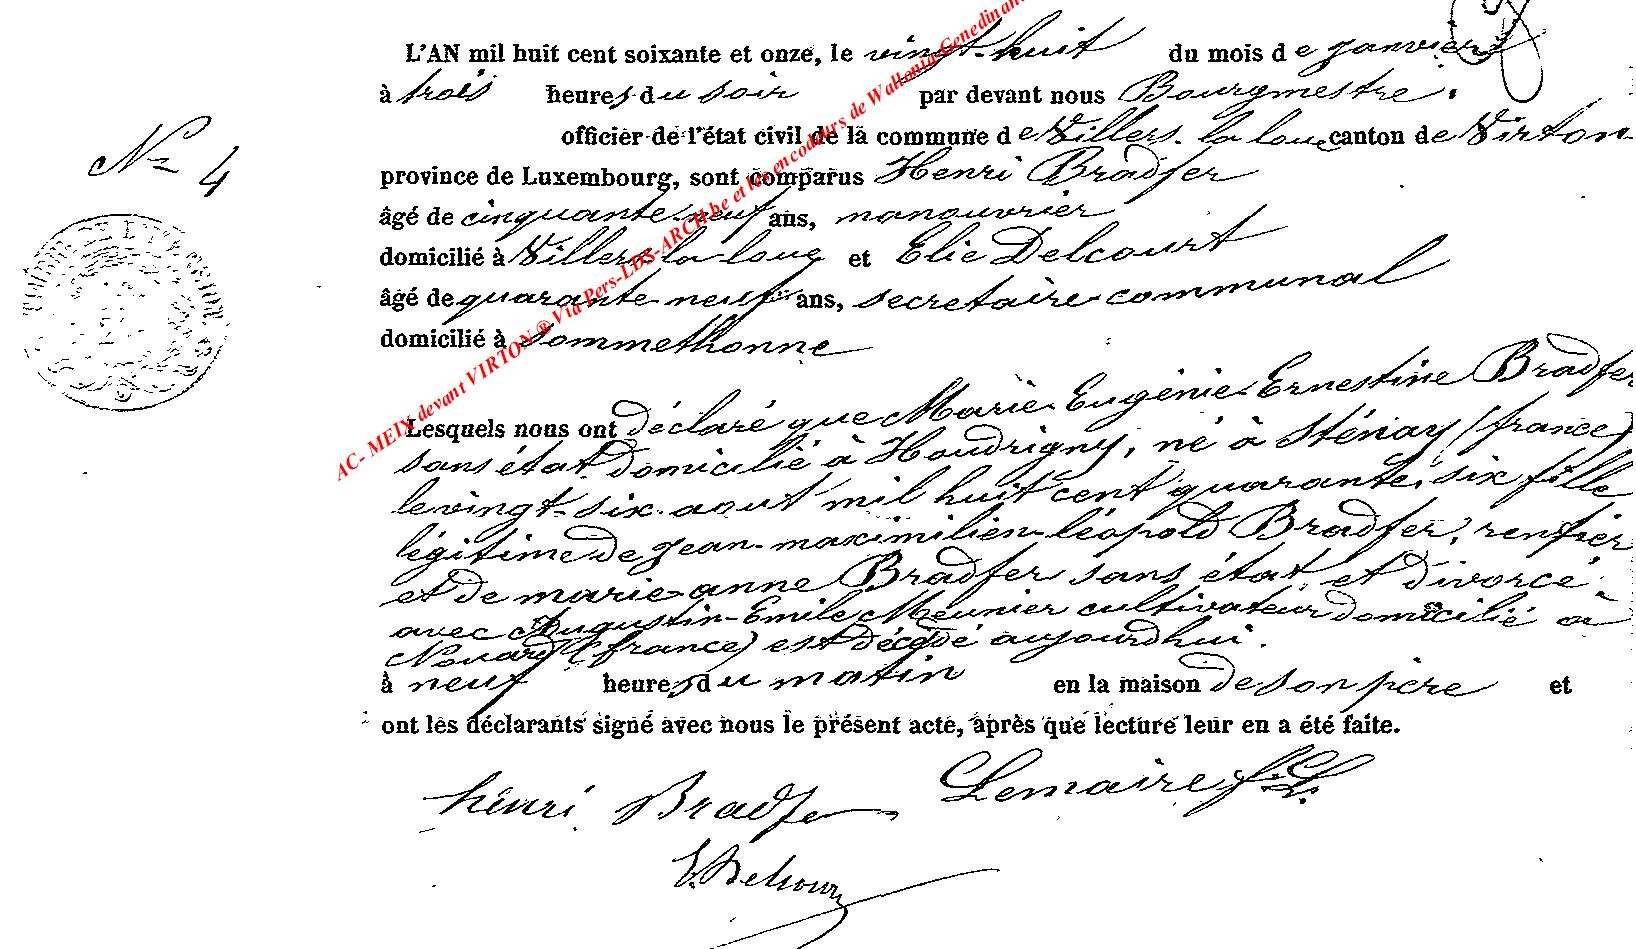 L'AN mil huit cent soixante et onze, le vingt-huit du mois de janvier
à trois heures du soir par devant nous Bourgmestre.
officier de l'état civil de la commune de Villers-la loue canton de Virton
N° 4
province de Luxembourg, sont comparus Henri Bradfer
âgé de cinquante-neuf ans, manouvrier
domicilié à Villers la loue et Elie Delcourt
âgé de quarante-neuf ans, secretaire communal
domicilié à Sommethonne
Lesquels nous ont déclaré que Marie-Eugénie-Ernestine Bradfer
sans état domicilié à Houdrigny, né à Sténay (france)
le vingt-six aout mil huit cent quarante-six fille
légitime de jean-maximilien-léopold Bradfer, rentier
et de marie-anne Bradfer sans état et divorcé
avec Augustin-Emile Meunier cultivateur domicilié à
Nouard (france) est décédé aujourdhui.
à neuf heures du matin en la maison de son père et
ont les déclarants signé avec nous le présent acte, après que lecture leur en a été faite.
henri Bradfer Lemaire
E. Delcourt
AC- MEIX devant VIRTON ® Via Pers-LDS-ARCH.be et les encodeurs de Wallonia Genedinant